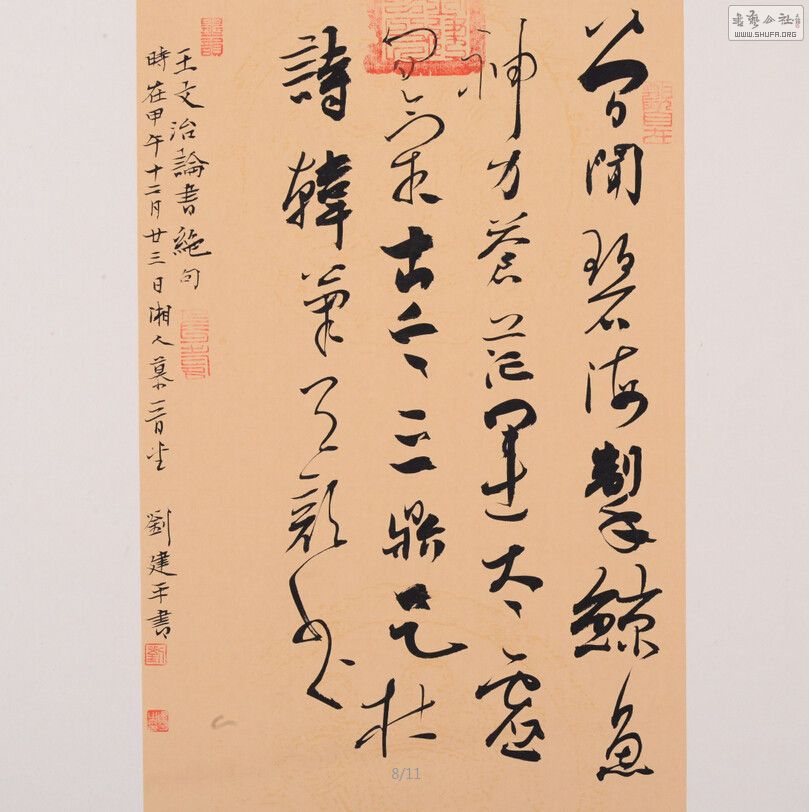 曾聞碧海掣鯨魚
神力蒼茫運太虛
間氣古今三鼎足杜
詩韓筆與顏書
王文治論書絕句
時在甲午十二月廿三日湘人 劉建平書
書藝公社
WWW.SHUFA.ORG
8/11